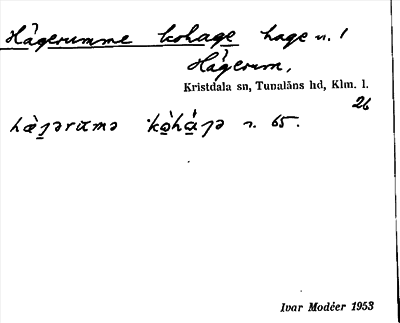 Hägerumme kohage hage n. 1
Hägerum,
Kristdala sn, Tunaläns hd, Klm. l.
26
n. 65.
Ivar Modéer 1953